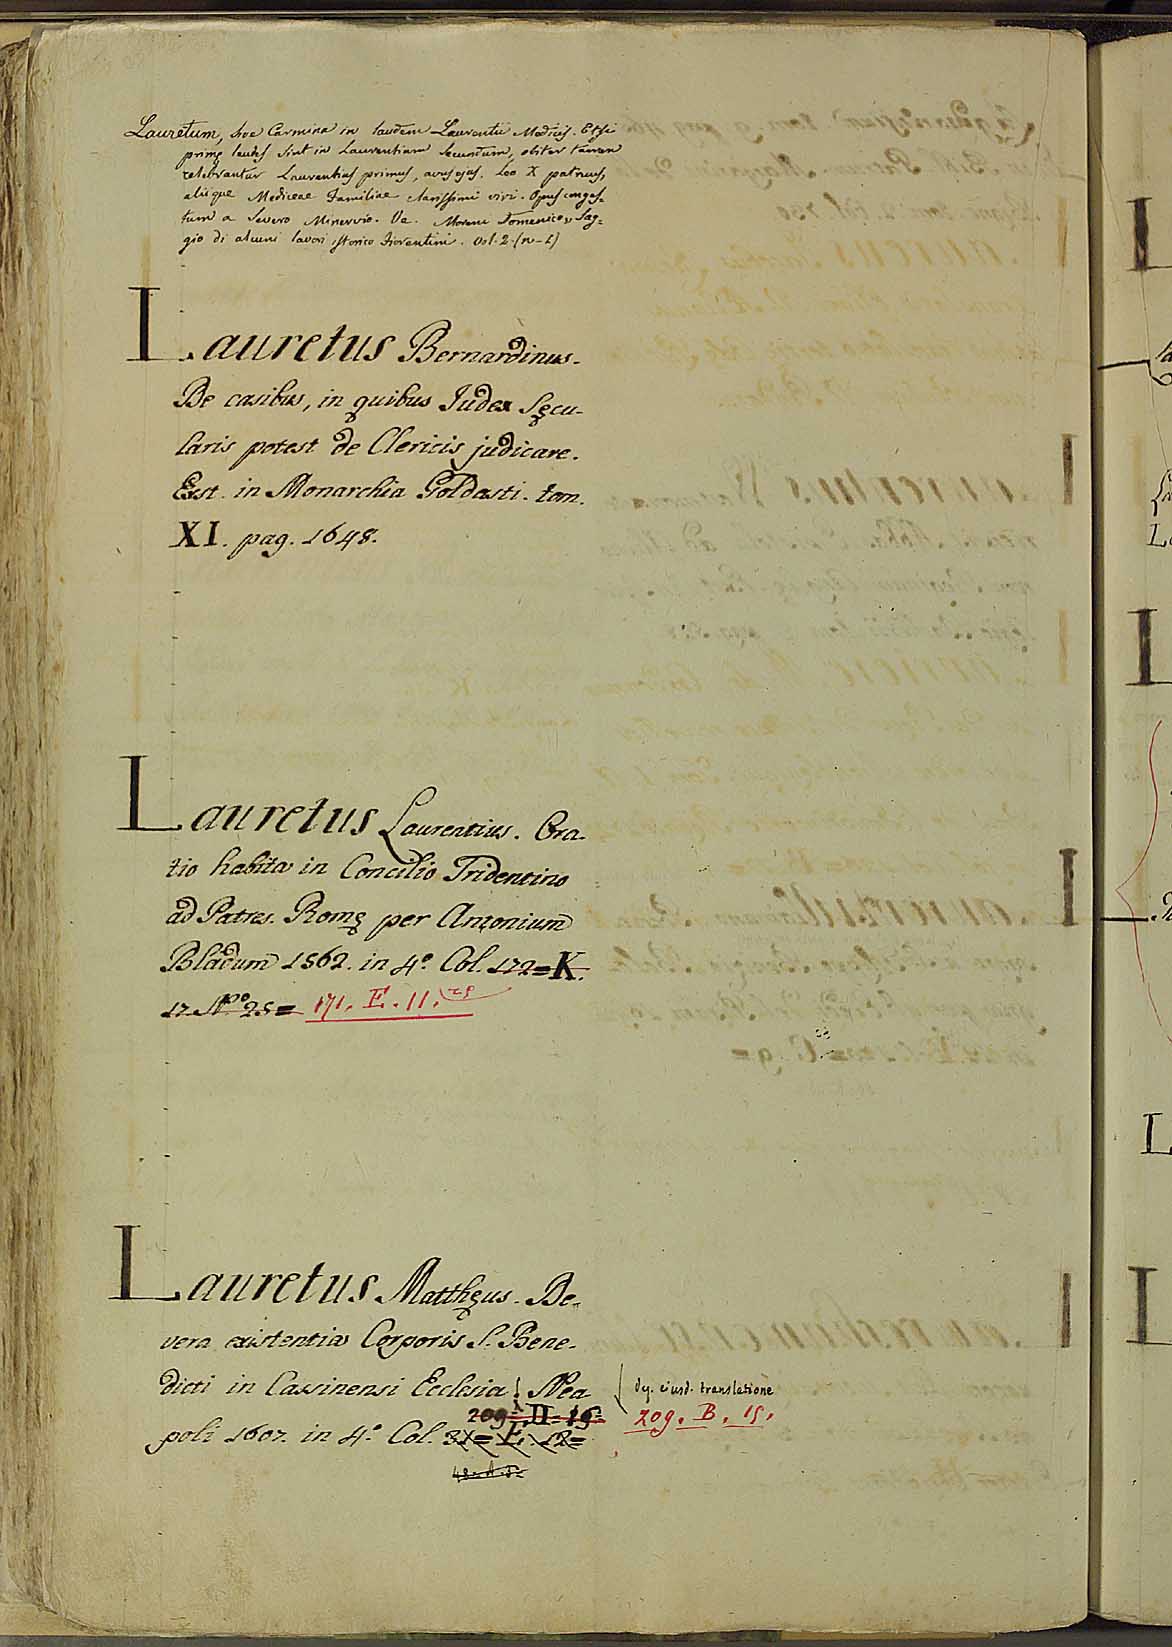 Lauretum, hoc Carmina in laudem Laurentii Medicis. Etsi
primę laudes sint in Laurentium secundum, obiter tamen
celebrantur Laurentius primus, avus ejus. Leo X patruus,
aliique Mediceae Familiae clarissimi viri. Opus conges-
tum a Severo Minervio. Ve. Moreni Domenico, Sag-
gio di alcuni lavori storico Fiorentini. Vol. 2.
Lauretus Bernardinus.
De casibus, in quibus Iudex Sęcu-
laris potest de Clericis judicare.
Est. in Monarchia Goldasti. tom.
XI. pag. 1648.
Lauretus Laurentius. Ora-
tio habita in Concilio Tridentino
ad Patres. Romę per Antonium
Bladum 1562. in 4.° Col. 172=K.
17. N.º 25= 171. E. 11. 25
Lauretus Matthęus. De
vera existentia Corporis S. Bene-
dicti in Cassinensi Ecclesia Nea
deq. ejusd. translatione
209=D=15= 209. B. 15.
poli 1607. in 4.° Col. 31=E. 12=